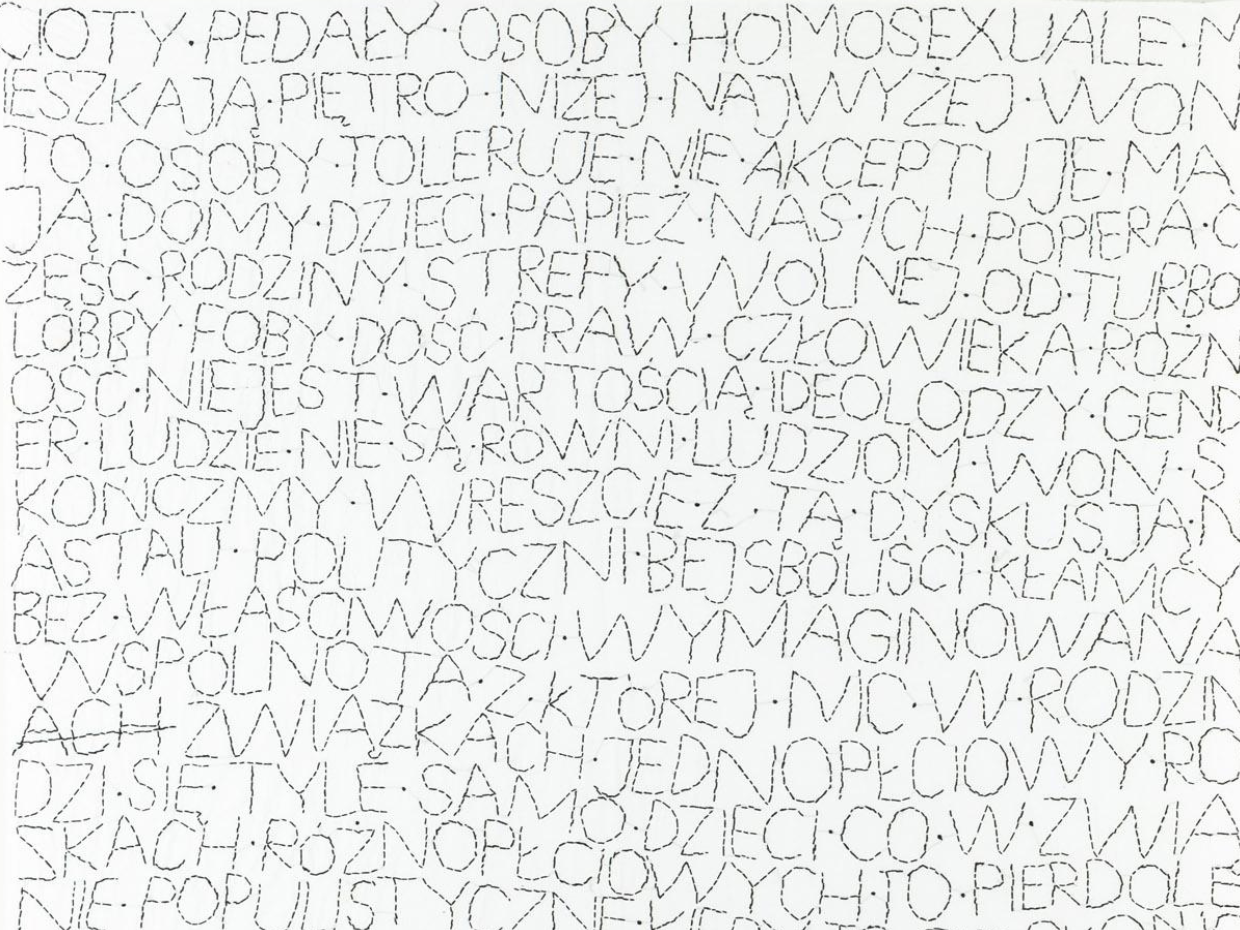 CIOTY · PEDAŁY · OSOBY · HOMOSEXUALE · M
IESZKAJĄ · PIĘTRO · NIŻEJ · NAJWYŻEJ · WON
TO · OSOBY · TOLERUJE · NIE · AKCEPTUJE · MA
JĄ · DOMY · DZIECI · PAPIEŻ · NAS · ICH · POPIERA · C
ZĘŚĆ · RODZINY · STREFY · WOLNEJ · OD · TURBO
LOBBY · FOBY · DOŚĆ · PRAW · CZŁOWIEKA · RÓŻN
OŚĆ · NIE JEST · WARTOŚCIĄ · IDEOLODZY · GEND
ER · LUDZIE · NIE · SĄ · RÓWNI · LUDZIOM · WON · S
KOŃCZMY · WRESZCIE Z · TĄ · DYSKUSJĄ · N
ASTAŁ · POLITYCZNI · BEJSBOLIŚCI · KŁAMCY
BEZ · WŁAŚCIWOŚCI · WYMAGINOWANA
WSPÓLNOTA · Z · KTÓREJ · NIC · W RODZIN
ACH ZWIĄZKACH · JEDNOPŁCIOWY · RO
DZI · SIĘ · TYLE · SAMO · DZIECI · CO · W · ZWIĄ
ZKACH · RÓŻNOPŁCIOWYCH · TO · PIERDOLE
NIE · POPULISTYCZNE ·